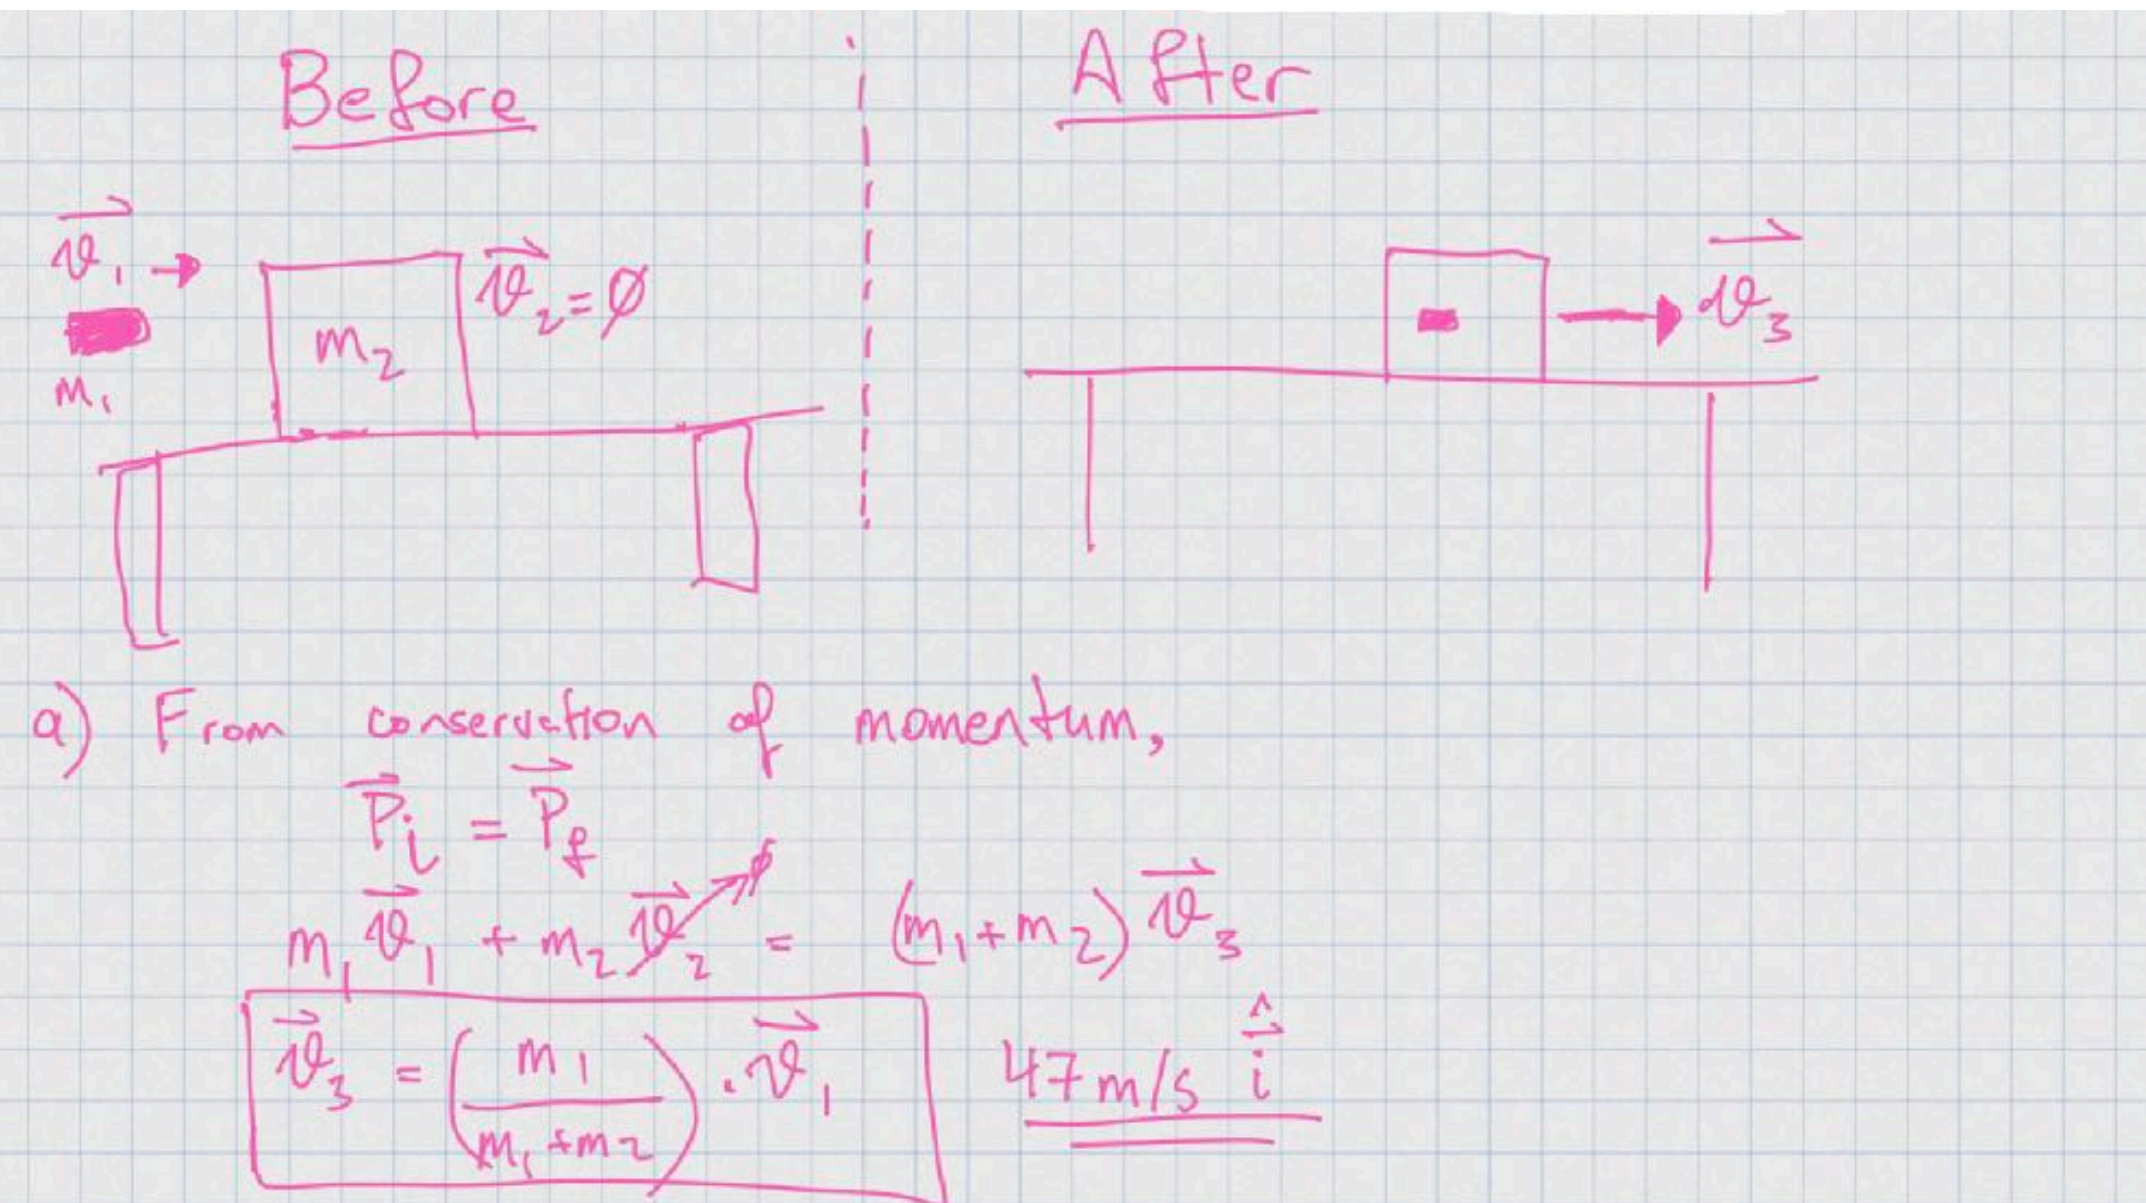 Before
After
v⃗₁ →
m₁
m₂
v⃗₂ = ∅
v⃗₃
a) From conservation of momentum,
P⃗i = P⃗f
m₁ v⃗₁ + m₂ v⃗₂ ↗∅ = (m₁ + m₂) v⃗₃
v⃗₃ = (m₁ / (m₁ + m₂)) · v⃗₁ 47 m/s î